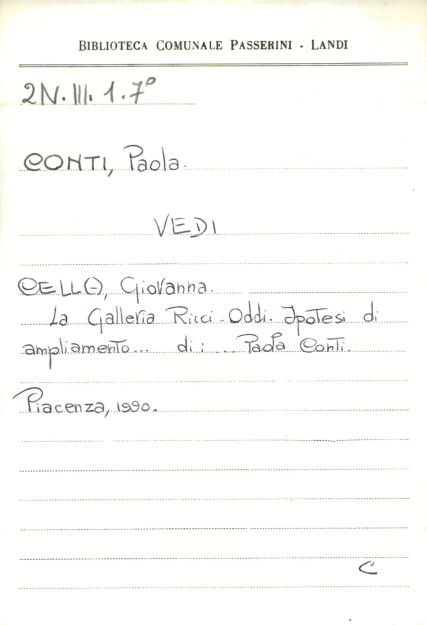 BIBLIOTECA COMUNALE PASSERINI - LANDI
2N.III.1.7°
CONTI, Paola.
VEDI
CELL(-), Giovanna.
La Galleria Ricci-Oddi. Ipotesi di
ampliamento... di: ... Paola Conti.
Piacenza, 1990.
C